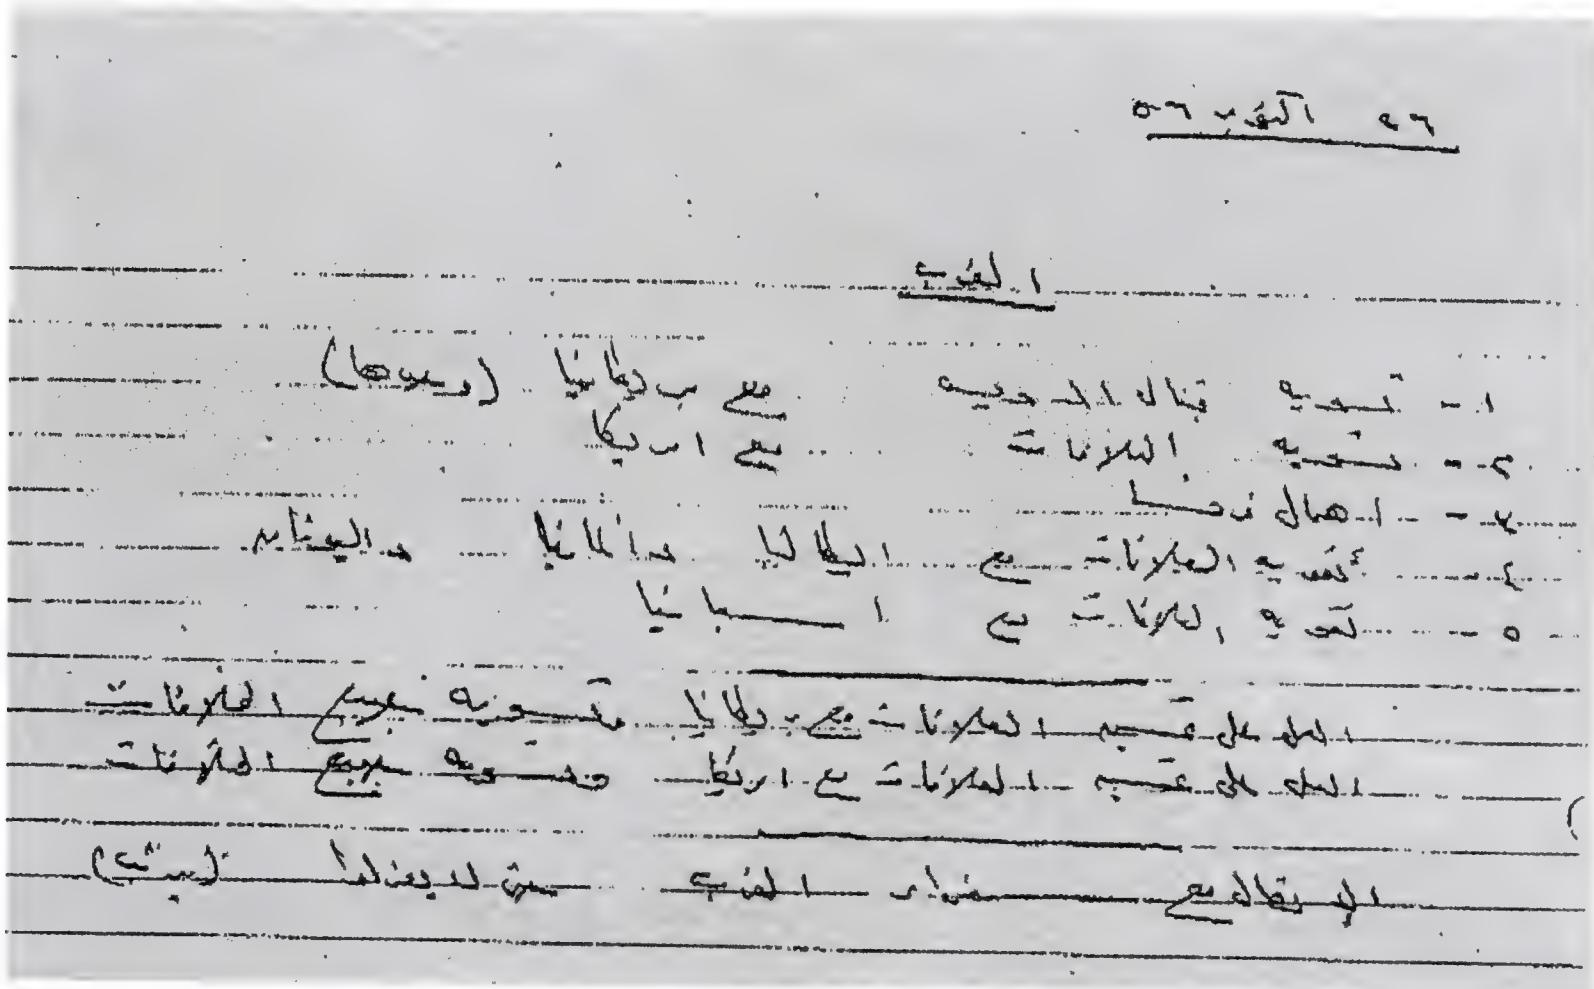 ٢٦ أكتوبر ٥٦
الغرب
١ - تسوية قنال السويس مع بريطانيا (وحدها)
٢ - تسوية العلاقات مع امريكا
٣ - اهمال فرنسا
٤ - تقوية العلاقات مع ايطاليا والمانيا واليونان
٥ - تقوية العلاقات مع اسبانيا
العمل على تحسين العلاقات مع بريطانيا وتسوية جميع العلاقات
العمل على تحسين العلاقات مع امريكا وتسوية جميع العلاقات
الاتصال مع سفراء الغرب حتى لا يعزلوا